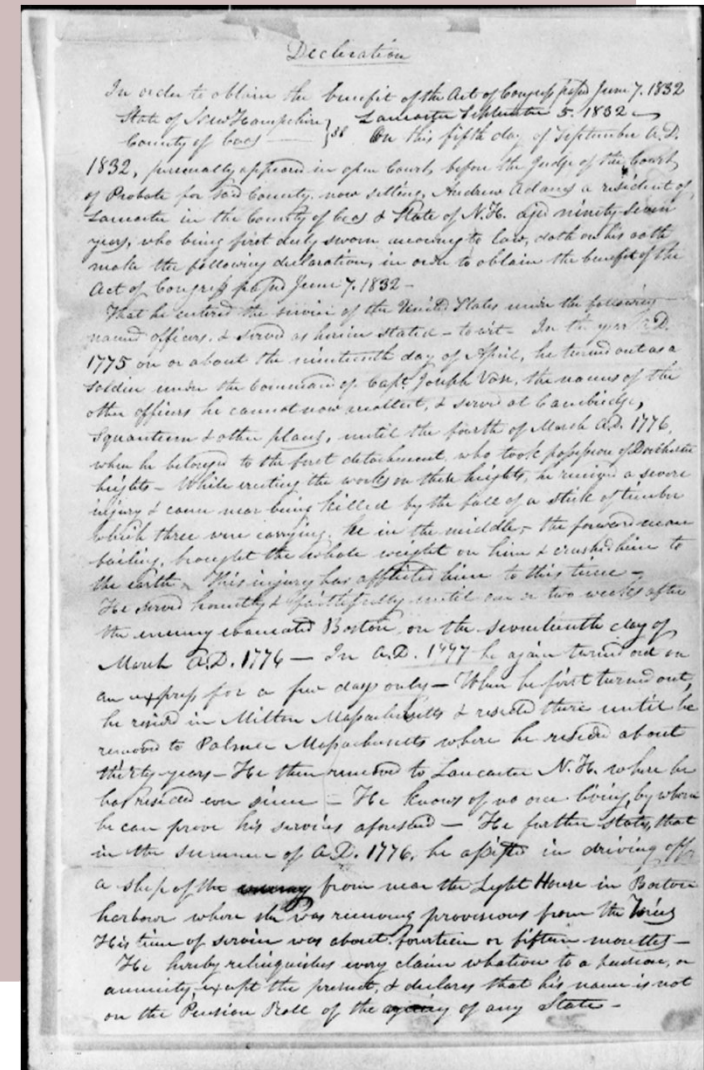 Declaration
In order to obtain the benefit of the Act of Congress passed June 7. 1832
State of New Hampshire } ss Lancaster September 5. 1832 -
County of Coos — On this fifth day of September A.D.
1832, personally appeared in open Court, before the Judge of the Court
of Probate for said County, now sitting, Andrew Adams a resident of
Lancaster in the County of Coos & State of N.H. aged ninety seven
years, who being first duly sworn according to law, doth on his oath
make the following declaration, in order to obtain the benefit of the
Act of Congress passed June 7. 1832 -
That he entered the service of the United States under the following
named officers, & served as herein stated - to wit - In the year A.D.
1775 on or about the nineteenth day of April, he turned out as a
soldier under the Command of Capt. Joseph Vose, the names of the
other officers he cannot now recollect, & served at Cambridge,
Squantum & other places, until the fourth of March A.D. 1776,
when he belonged to the first detachment who took possession of Dorchester
heights - While erecting the works on these heights, he received a severe
injury & came near being killed by the fall of a stick of timber
which three were carrying, he in the middle, - the forward man
failing, brought the whole weight on him & crushed him to
the earth. This injury has afflicted him to this time -
He served honestly & faithfully until one or two weeks after
the enemy evacuated Boston, on the seventeenth day of
March A.D. 1776 — In A.D. 1777 he again turned out on
an express for a few days only - When he first turned out,
he resided in Milton Massachusetts & resided there until he
removed to Palmer Massachusetts where he resided about
thirty years - He then removed to Lancaster N.H. where he
has resided ever since - He knows of no one living, by whom
he can prove his services aforesaid - He further states, that
in the summer of A.D. 1776, he assisted in driving off
a ship of the enemy from near the Light House in Boston
harbour where she was receiving provisions from the Tories
His time of service was about fourteen or fifteen months -
He hereby relinquishes every claim whatever to a pension, or
annuity, except the present, & declares that his name is not
on the Pension Roll of the agency of any State -